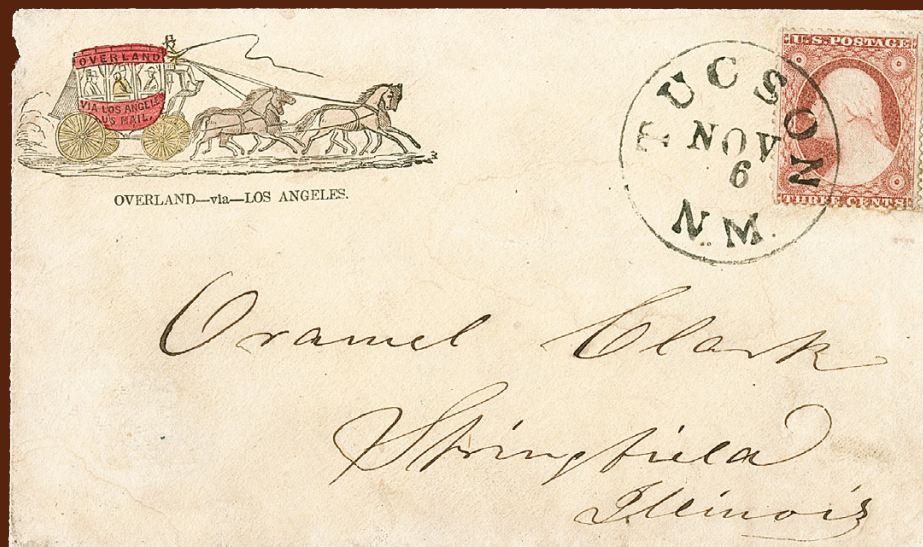 OVERLAND
VIA LOS ANGELES
US MAIL.
OVERLAND—via—LOS ANGELES.
TUCSON
NOV
6
N.M.
U.S. POSTAGE
THREE CENTS
Oramel Clark
Springfield
Illinois